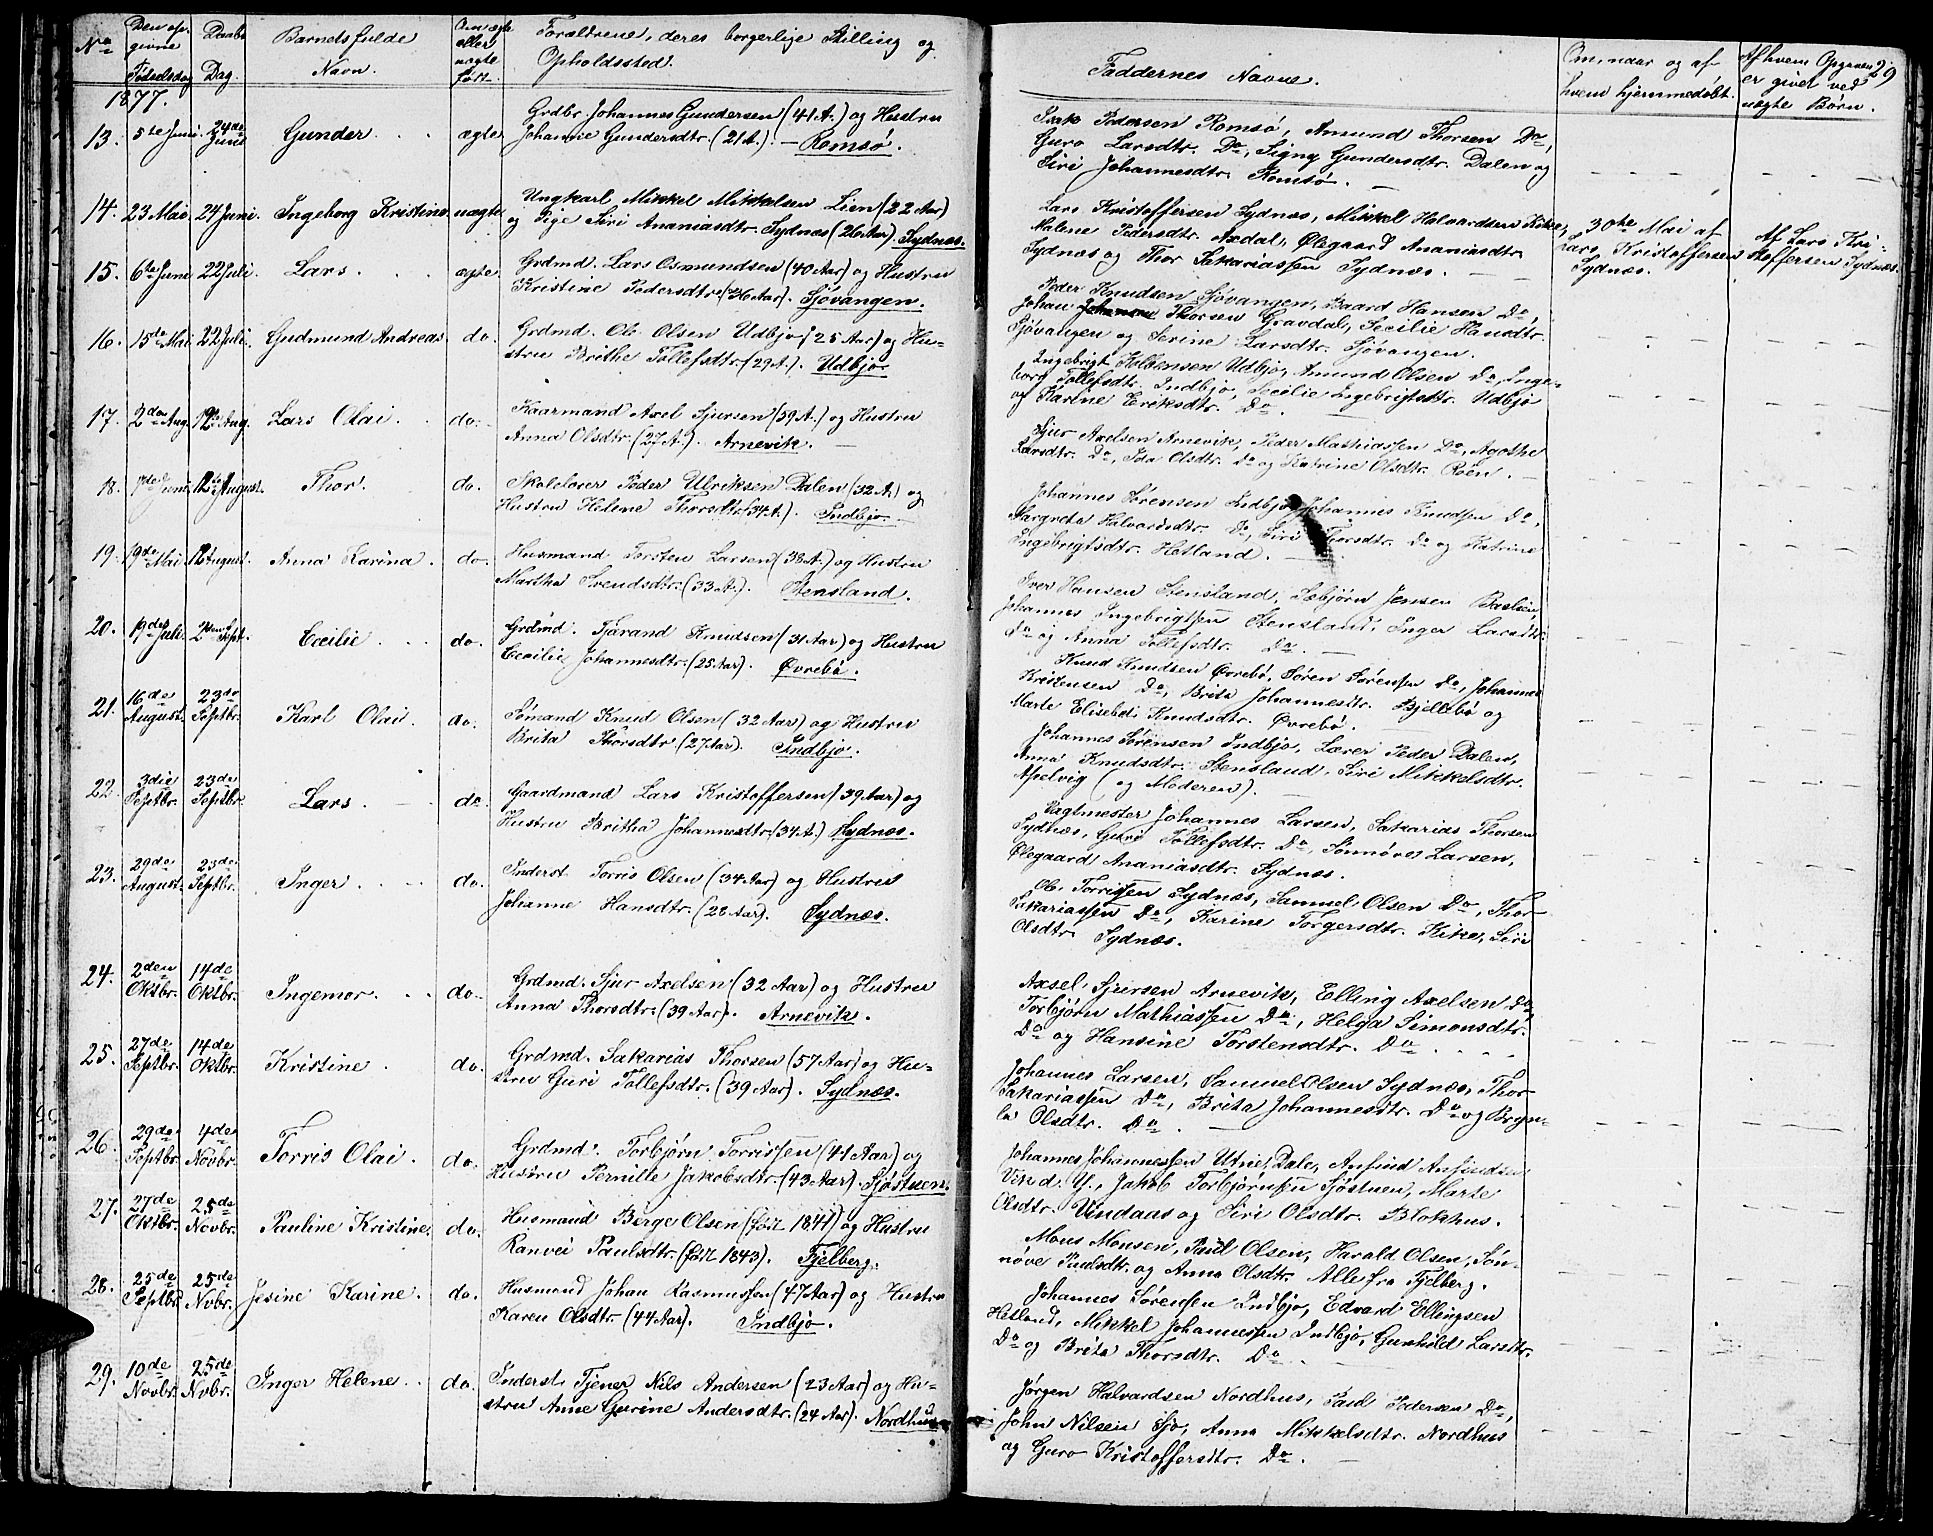 No
Den op-
givne
Fødselsdag
Daabs
Dag.
Barnets fulde
Navn.
Om ægte
eller
uægte
født.
Forældrene, deres borgerlige Stilling og
Opholdssted.
Faddernes Navne.
Om naar og af
hvem hjemmedøbt.
Af hvem Opgaven
er givet ved
uægte Børn.
29
1877.
13. 5te Juni. 24de Juni Gunder ægte
Grdbr. Johannes Gundersen (41 A.) og Hustru
Johanne Gundersdtr. (21 A.) — Romsø.
Isak Pedersen Romsø, Amund Thorsen Do,
Guro Larsdtr. Do, Signy Gundersdtr. Dalen og
Siri Johannesdtr. Romsø.
14. 23 Mai. 24 Juni. Ingeborg Kristine uægte
Ungkarl Mikkel Mikkelsen Lien (22 Aar)
og Pige Siri Ananiasdtr. Sydnæs (26 Aar). Sydnæs.
Lars Kristoffersen Sydnæs, Mikkel Halvardsen Kike,
Malene Pedersdtr. Axdal, Ølegaard Ananiasdtr.
Sydnæs og Thor Sakariassen Sydnæs.
30te Mai af
Lars Kristoffersen
Sydnæs.
Af Lars Kri-
stoffersen Sydnæs.
15. 6te Juni 22 Juli. Lars ægte
Grdmd. Lars Osmundsen (40 Aar) og Hustru
Kristine Pedersdtr. (36 Aar). Sjövangen.
Peder Knudsen Sjövangen, Baard Hansen Do,
Johan Thorsen Gravdal, Secilie Hansdtr.
Sjövangen og Serine Larsdtr. Sjövangen.
16. 15de Mai 22 Juli. Gudmund Andreas do.
Grdmd. Ole Olsen Udbjo (25 Aar) og Hu-
stru Brithe Tollefsdtr. (29 A.). Udbjo
Ingebrigt Kolbensen Udbjo, Amund Olsen Do, Inge-
borg Tollefsdtr. Indbjo, Secilie Ingebrigtsdtr. Udbjo
og Karine Eriksdtr. Do.
17. 2den Aug. 12te Aug. Lars Olai do.
Kaarmand Axel Sjursen (39 A.) og Hustru
Anna Olsdtr. (27 A.). Arnevik.
Sjur Axelsen Arnevik, Peder Mathiassen Do, Agothe
Larsdtr. Do, Ida Olsdtr. Do og Katrine Olsdtr. Röen.
18. 7de Juni 12te August. Thor. do.
Skolelærer Peder Ulriksen Dalen (32 A.) og
Hustru Helene Thorsdtr. (34 A.). Indbjo.
Johannes Sörensen Indbjo, Johannes Knudsen Do,
Margrete Halvardsdtr. Do, Siri Thorsdtr. Do og Katrine
Ingebrigtsdtr. Hetland.
19. 19de Mai 12 August. Anna Karina do.
Husmand Torsten Larsen (38 A.) og Hustru
Martha Svendsdtr. (33 A.). Stensland.
Iver Hansen Stensland, Sæbjörn Jensen
Johannes Ingebrigtsen Stensland, Inger Larsdtr.
Do og Anna Tollefsdtr. Do.
20. 19de Juli. 2den Sept. Cecilie do.
Grdmd. Tjerand Knudsen (31 Aar) og Hustru
Cecilie Johannesdtr. (25 Aar). Øvrebö.
Knud Knudsen Øvrebö, Sören Sörensen Do, Johannes
Kristensen Do, Brita Johannesdtr. Bjellebö og
Marte Elisebet Knudsdtr. Øvrebö.
21. 16de August. 23de Septbr. Karl Olai do.
Sömand Knud Olsen (32 Aar) og Hustru
Brita Thorsdtr. (27 Aar). Indbjo.
Johannes Sörensen Indbjo, Lærer Peder Dalen,
Anna Knudsdtr. Stensland, Siri Mikkelsdtr.
Apelvig (og Moderen).
22. 3die Septbr. 23de Septbr. Lars do.
Gaardmand Lars Kristoffersen (39 Aar) og
Hustru Britha Johannesdtr. (34 A.) Sydnæs.
Vagtmester Johannes Larsen, Sakarias Thorsen
Sydnæs, Guri Tollefsdtr. Do, Sönnöve Larsen,
Ølegaard Ananiasdtr. Sydnæs.
23. 29de August. 23de Septbr. Inger do.
Inderst. Torris Olsen (34 Aar) og Hustru
Johanne Hansdtr. (28 Aar). Sydnæs.
Ole Torrissen Sydnæs, Samuel Olsen Do, Thor
Sakariassen Do, Karine Torgersdtr. Kike, Siri
Olsdtr. Sydnæs.
24. 2den Oktbr. 14de Oktbr. Ingemor do.
Grdmd. Sjur Axelsen (32 Aar) og Hustru
Anna Thorsdtr. (39 Aar). Arnevik.
Axsel Sjursen Arnevik, Elling Axelsen Do,
Torbjörn Mathiassen Do, Helga Simonsdtr.
Do og Hansine Torstensdtr. Do
25. 27de Septbr. 14de Oktbr. Kristine do.
Grdmd. Sakarias Thorsen (57 Aar) og Hu-
stru Guri Tollefsdtr. (39 Aar). Sydnæs.
Johannes Larsen, Samuel Olsen Sydnæs, Thor
Sakariassen Do, Brita Johannesdtr. Do og Bryn-
la Olsdtr. Do.
26. 29de Septbr. 4de Novbr. Torris Olai. do.
Grdmd. Torbjörn Torrissen (41 Aar) og
Hustru Pernille Jakobsdtr. (43 Aar). Sjöstuen.
Johannes Johannessen Utne, Dale, Anfind Anfindsen
Vik d. Y., Jakob Torbjörnsen Sjöstuen, Marte
Olsdtr. Vindaas og Siri Olsdtr. Blokhus.
27. 27de Oktbr. 25de Novbr. Pauline Kristine. do.
Husmand Berge Olsen (född 1841) og Hustru
Ranvei Paulsdtr. (född 1843). Fjelberg.
Mons Monsen, Paul Olsen, Harald Olsen, Sön-
növe Paulsdtr. og Anna Olsdtr. Alle fra Fjelberg.
28. 25de Septbr. 25de Nvbr. Jesine Karine. do.
Husmand Johan Rasmussen (47 Aar) og Hustru
Karen Olsdtr. (44 Aar). Indbjo.
Johannes Sörensen Indbjo, Edvard Ellingsen
Hetland, Mikkel Johannessen Indbjo, Gunhild Larsdtr.
Do og Brita Thorsdtr. Do.
29. 10de Novbr. 25de Nvbr. Inger Helene do.
Inderst, Tjener Nils Andersen (23 Aar) og Hu-
stru Anne Gurine Andersdtr. (24 Aar). Nordhus.
Jörgen Halvardsen Nordhus, Paul Pedersen Do,
John Nilsen Sjo, Anna Mikkelsdtr. Nordhus
og Guro Kristoffersdtr. Do.